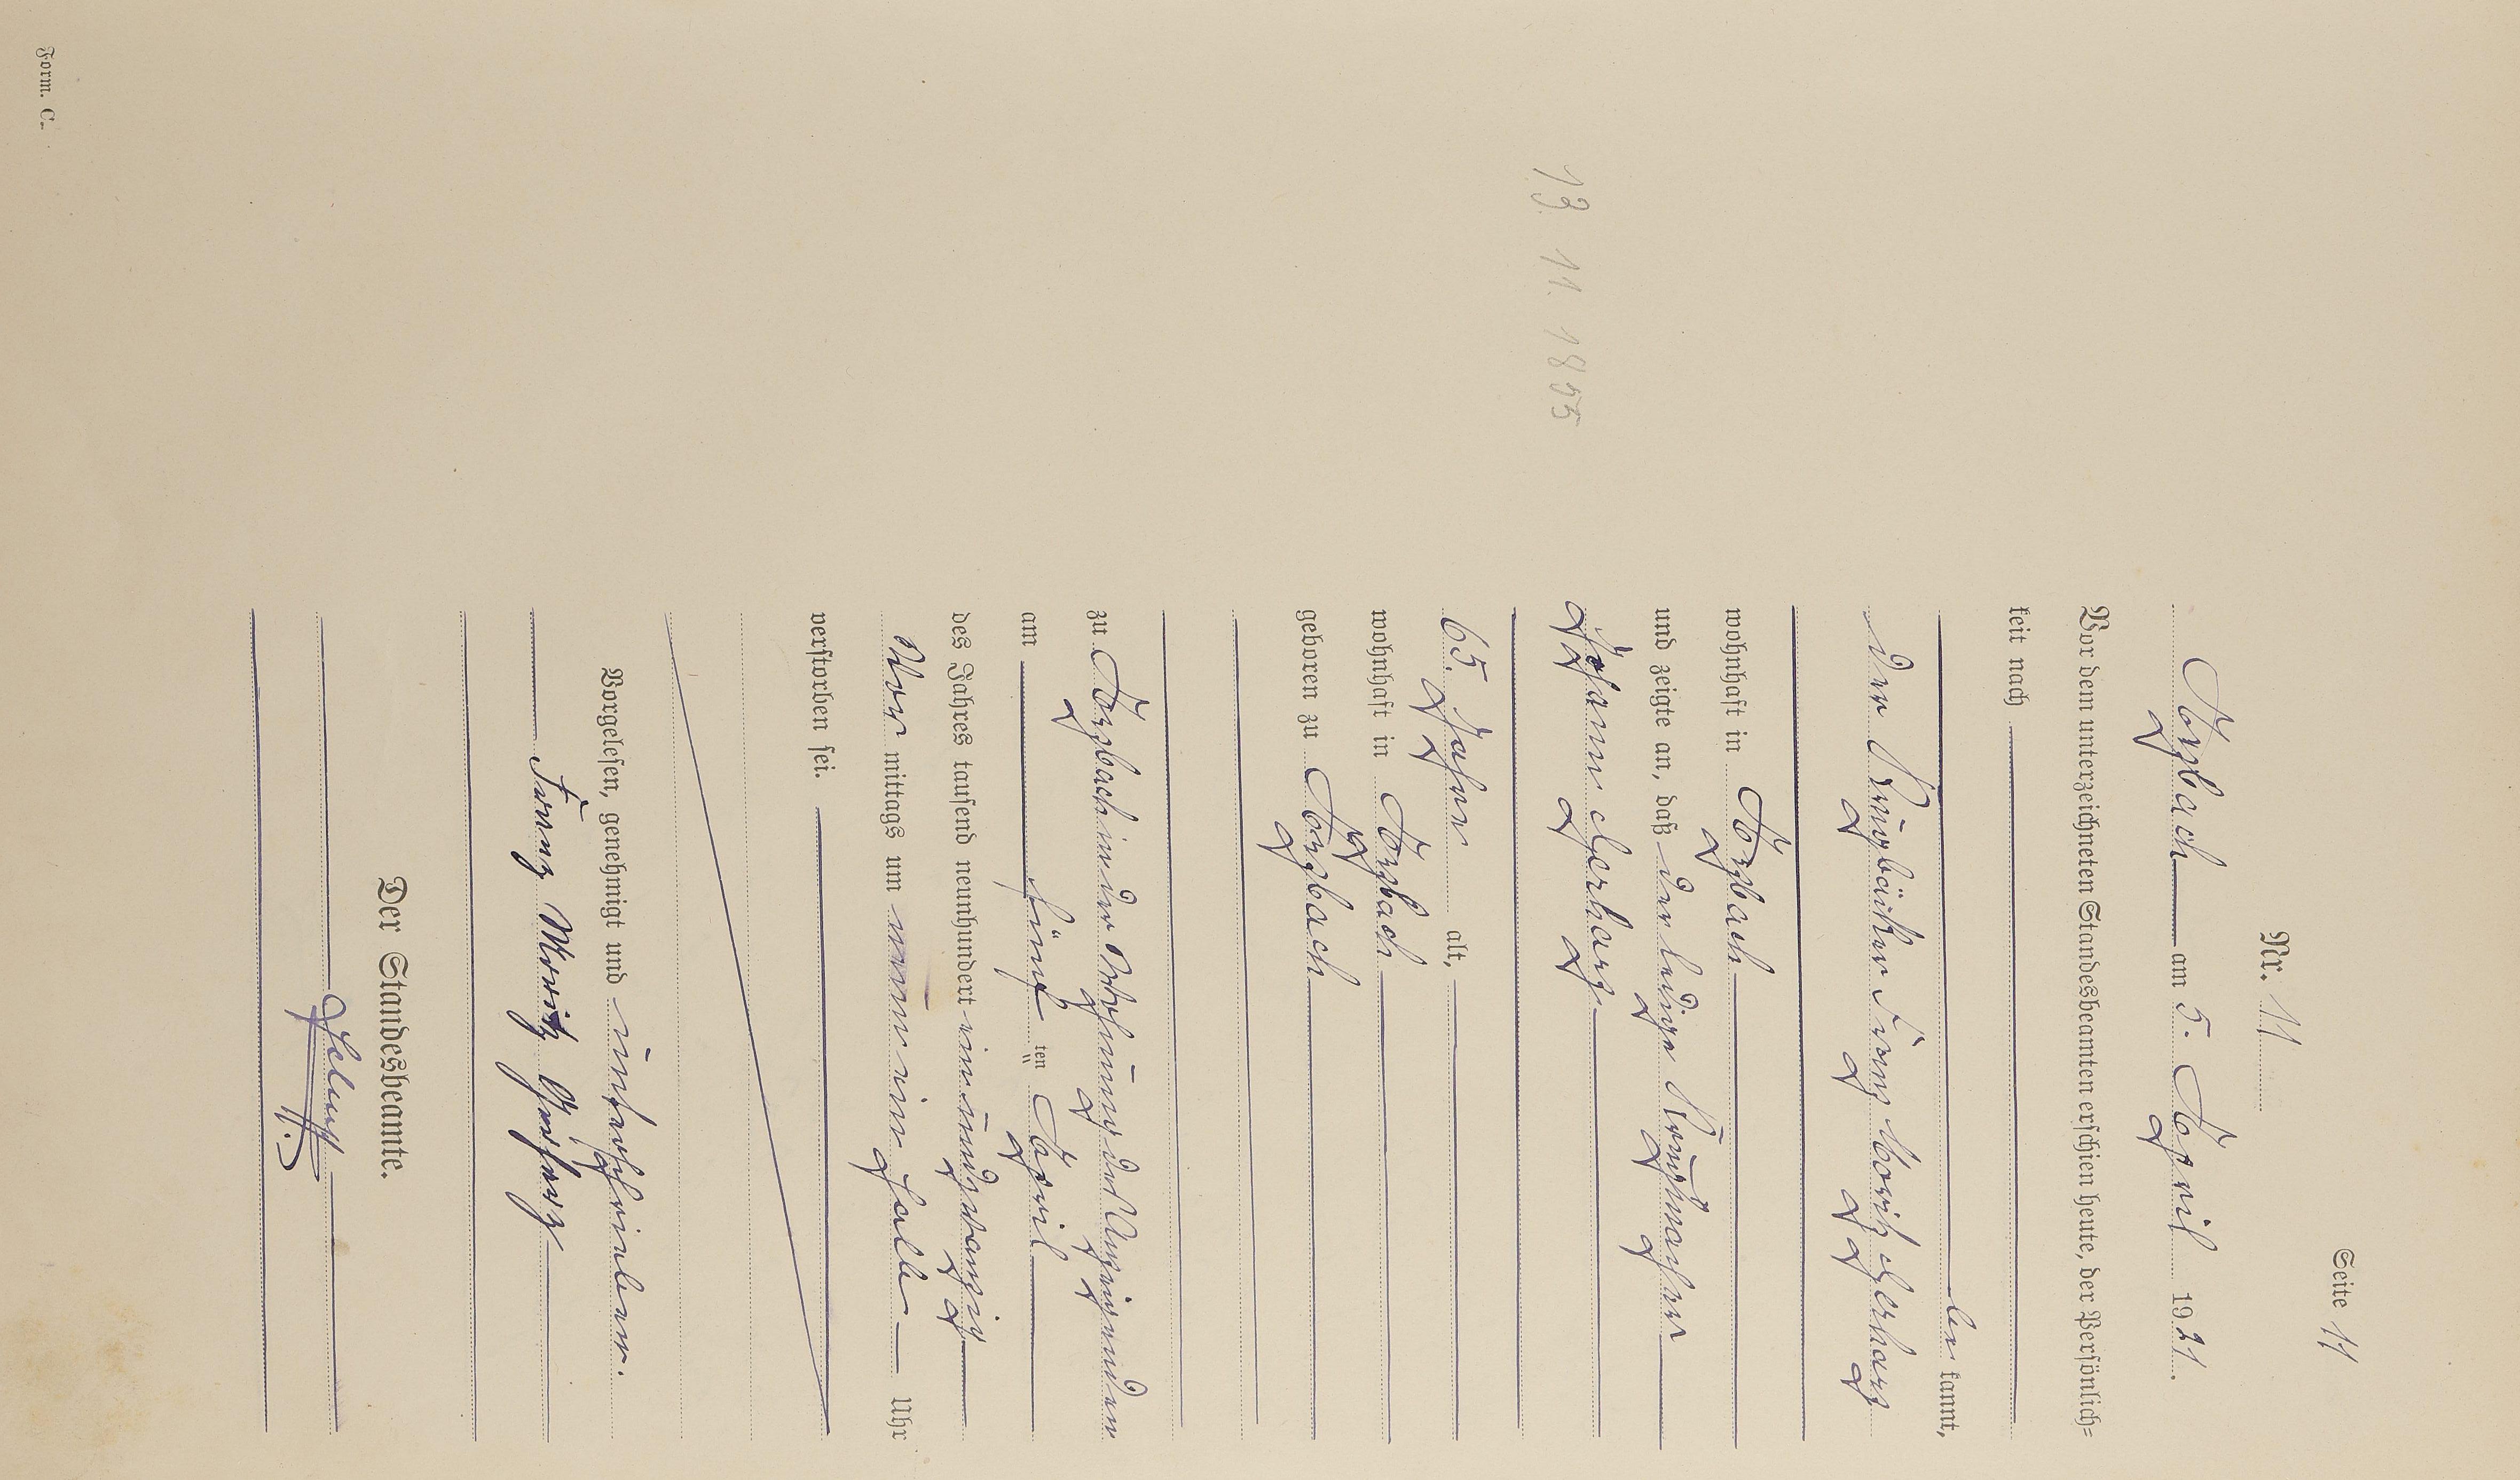 Seite 11
Nr. 11
Dörzbach am 5. April 1921.
Vor dem unterzeichneten Standesbeamten erschien heute, der Persönlich=
keit nach
be kannt,
der Franz Moritz Gerharz
wohnhaft in Dörzbach
und zeigte an, daß der ledige
Johann Gerharz
13. 11. 1855
65 Jahre alt,
wohnhaft in Dörzbach
geboren zu Dörzbach
zu Dörzbach in der Wohnung des Anzeigenden
am fünf ten April
des Jahres tausend neunhundert einundzwanzig
Vor mittags um neun ein halb Uhr
verstorben sei.
Vorgelesen, genehmigt und unterschrieben.
Franz Moritz Gerharz
Der Standesbeamte.
Form. C.